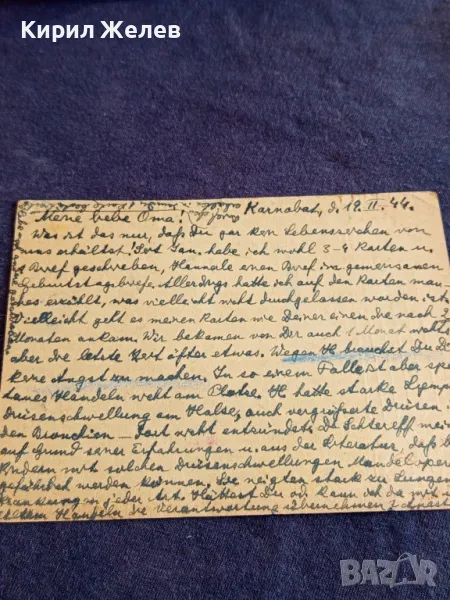 Кирил Желев
Karnobat, d. 19.II.44.
Meine liebe Oma!
Was ist das nur, daß Du gar kein Lebenszeichen von
uns erhältst! Seit Jan. habe ich wohl 3-4 Karten u.
Brief geschrieben, Hannele einen Brief im gemeinsamen
Geburtstagsbriefe. Allerdings hatte ich auf den Karten man-
ches erzählt, was vielleicht nicht durchgelassen worden ist.
Vielleicht geht es meinen Karten wie Deiner einen die nach 2
Monaten ankam. Wir bekamen von Dir auch 1 Monat nichts
aber die letzte Zeit öfter etwas. Wegen H. brauchst Du Dir
keine Angst zu machen. In so einem Fall ist aber
Handeln nicht am Platze. H. hatte starke Lymph-
drüsenschwellung am Halse, auch vergrößerte Drüsen
den Bronchien – dort nicht entzündet. Dr.
auf Grund seiner Erfahrungen u. aus der Literatur, daß
Kindern mit solchen Drüsenschwellungen Mandeloper
gefährlich werden können. Sie neigten stark zu Lungen
erkrankung in jeder Art. Hättest Du
Handeln die Verantwortung übernehmen
BAZAR